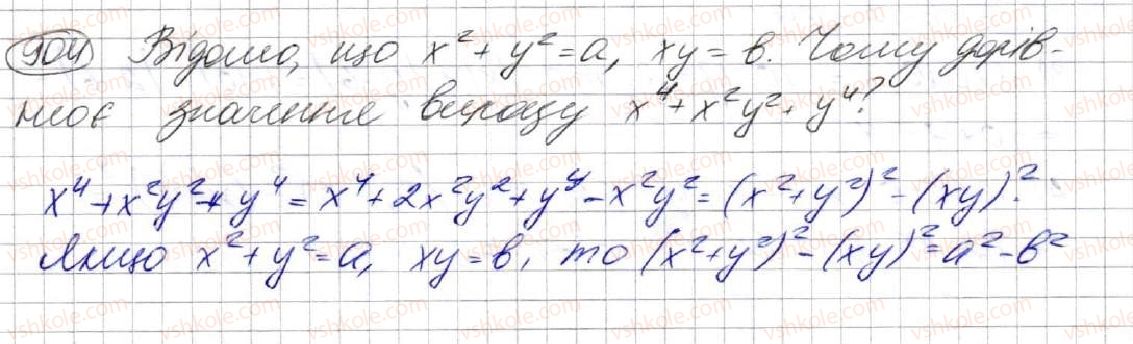 904 Відомо, що x² + y² = a, xy = b. Чому дорів-
нює значення виразу x⁴ + x²y² + y⁴?
x⁴ + x²y² + y⁴ = x⁴ + 2x²y² + y⁴ - x²y² = (x² + y²)² - (xy)².
Якщо x² + y² = a, xy = b, то (x² + y²)² - (xy)² = a² - b²